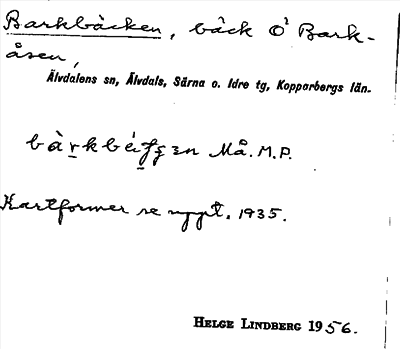 Barkbäcken, bäck Ö Bark-
åsen,
Älvdalens sn, Älvdals, Särna o. Idre tg, Kopparbergs län.
Må. M.P.
Kartformer se uppt. 1935.
HELGE LINDBERG 1956.